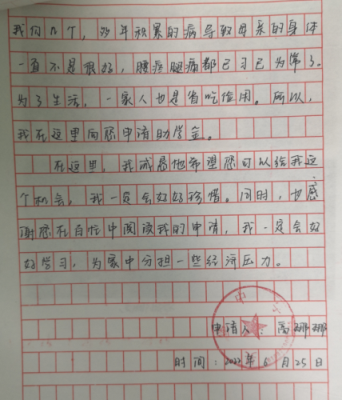 我们几个，多年积累的病导致母亲的身体
一直不是很好，腰疼腿疼都已习已为常了。
为了生活，一家人也是省吃俭用。所以，
我在这里向您申请助学金。
在这里，我诚恳地希望您可以给我这
个机会，我一定会好好珍惜。同时，也感
谢您在百忙中阅读我的申请，我一定会好
好学习，为家中分担一些经济压力。
申请人：
时间：2022年6月25日